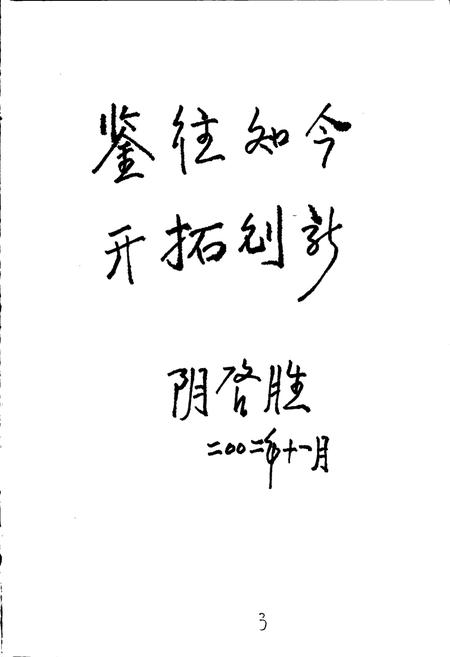 鉴往知今
开拓创新
阴启胜
二00二年十一月
3